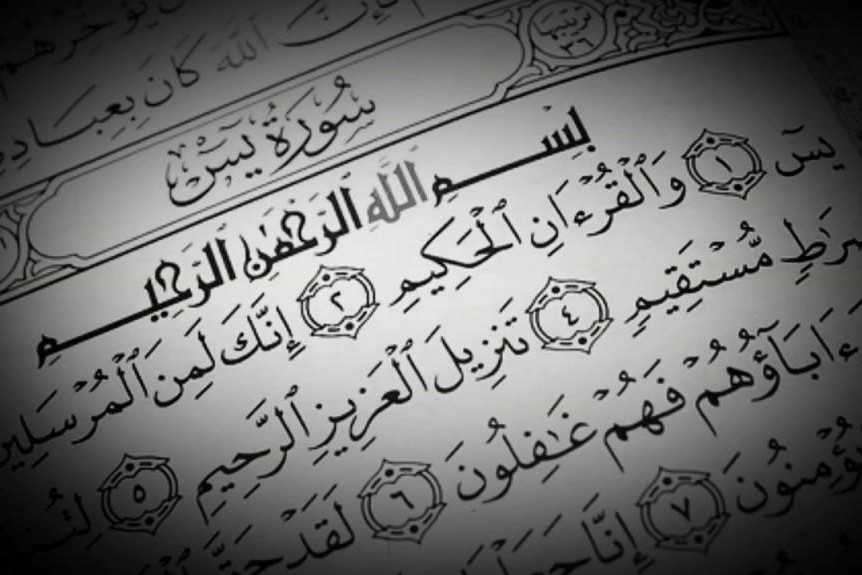 يُؤَخِّرُهُمْ
فَإِنَّ ٱللَّهَ كَانَ بِعِبَادِهِ
سُورَةُ يسٓ
بِسْمِ ٱللَّهِ ٱلرَّحْمَٰنِ ٱلرَّحِيمِ
يسٓ ١ وَٱلْقُرْءَانِ ٱلْحَكِيمِ ٢ إِنَّكَ لَمِنَ ٱلْمُرْسَلِينَ
صِرَٰطٍ مُّسْتَقِيمٍ ٤ تَنزِيلَ ٱلْعَزِيزِ ٱلرَّحِيمِ ٥ لِتُنذِ
ءَابَآؤُهُمْ فَهُمْ غَٰفِلُونَ ٦ لَقَدْ حَقَّ
يُؤْمِنُونَ ٧ إِنَّا جَعَلْنَا